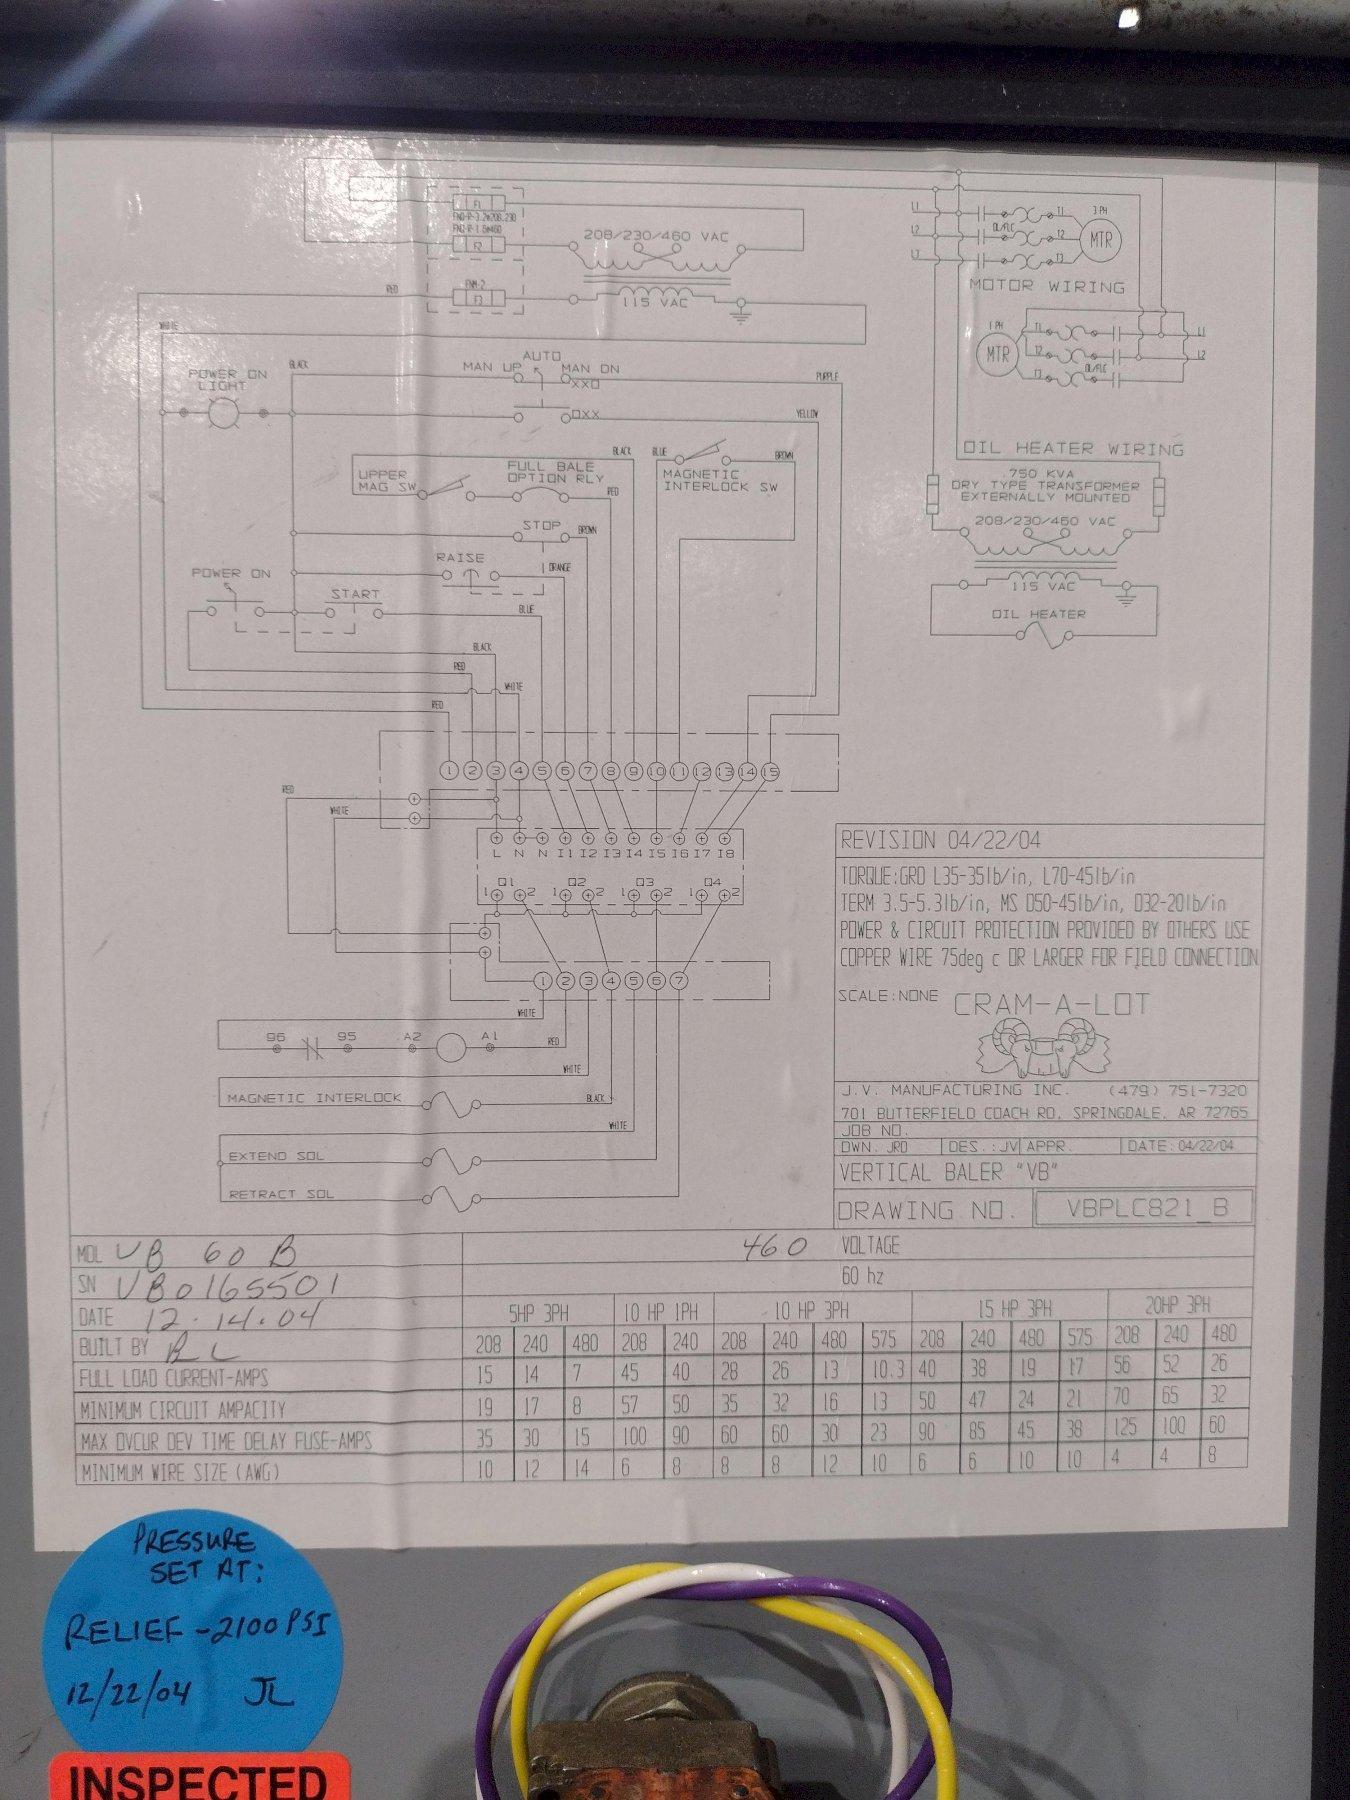 F1
FNQ-R-3.2@208.230
FNQ-R-1.8@460
F2
208/230/460 VAC
FNM-2
F3
115 VAC
RED
WHITE
L1
L2
L3
OL/FLC
T1
T2
T3
3 PH
MTR
MOTOR WIRING
1 PH
MTR
T1
T2
T3
OL/FLC
L1
L2
POWER ON
LIGHT
BLACK
MAN UP
AUTO
MAN DN
XXO
PURPLE
OXX
YELLOW
UPPER
MAG SW
FULL BALE
OPTION RLY
BLACK
RED
BLUE
BROWN
MAGNETIC
INTERLOCK SW
STOP
BROWN
RAISE
ORANGE
POWER ON
START
BLUE
BLACK
RED
WHITE
RED
OIL HEATER WIRING
750 KVA
DRY TYPE TRANSFORMER
EXTERNALLY MOUNTED
208/230/460 VAC
115 VAC
OIL HEATER
1 2 3 4 5 6 7 8 9 10 11 12 13 14 15
RED
WHITE
L N N I1 I2 I3 I4 I5 I6 I7 I8
Q1 Q2 Q3 Q4
1 2 1 2 1 2 1 2
1 2 3 4 5 6 7
WHITE
96 95 A2 A1
RED
WHITE
MAGNETIC INTERLOCK
BLACK
WHITE
EXTEND SOL
RETRACT SOL
REVISION 04/22/04
TORQUE:GRD L35-35lb/in, L70-45lb/in
TERM 3.5-5.3lb/in, MS D50-45lb/in, D32-20lb/in
POWER & CIRCUIT PROTECTION PROVIDED BY OTHERS USE
COPPER WIRE 75deg c OR LARGER FOR FIELD CONNECTION
SCALE:NONE
CRAM-A-LOT
J.V. MANUFACTURING INC. (479) 751-7320
701 BUTTERFIELD COACH RD, SPRINGDALE, AR 72765
JOB NO.
DWN. JRD DES.:JV APPR. DATE:04/22/04
VERTICAL BALER "VB"
DRAWING NO. VBPLC821_B
MDL VB 60 B
460 VOLTAGE
SN VB0165501
60 hz
DATE 12.14.04
5HP 3PH 10 HP 1PH 10 HP 3PH 15 HP 3PH 20HP 3PH
BUILT BY RL
208 240 480 208 240 208 240 480 575 208 240 480 575 208 240 480
FULL LOAD CURRENT-AMPS 15 14 7 45 40 28 26 13 10.3 40 38 19 17 56 52 26
MINIMUM CIRCUIT AMPACITY 19 17 8 57 50 35 32 16 13 50 47 24 21 70 65 32
MAX OVCUR DEV TIME DELAY FUSE-AMPS 35 30 15 100 90 60 60 30 23 90 85 45 38 125 100 60
MINIMUM WIRE SIZE (AWG) 10 12 14 6 8 8 8 12 10 6 6 10 10 4 4 8
PRESSURE
SET AT:
RELIEF - 2100 PSI
12/22/04 JL
INSPECTED